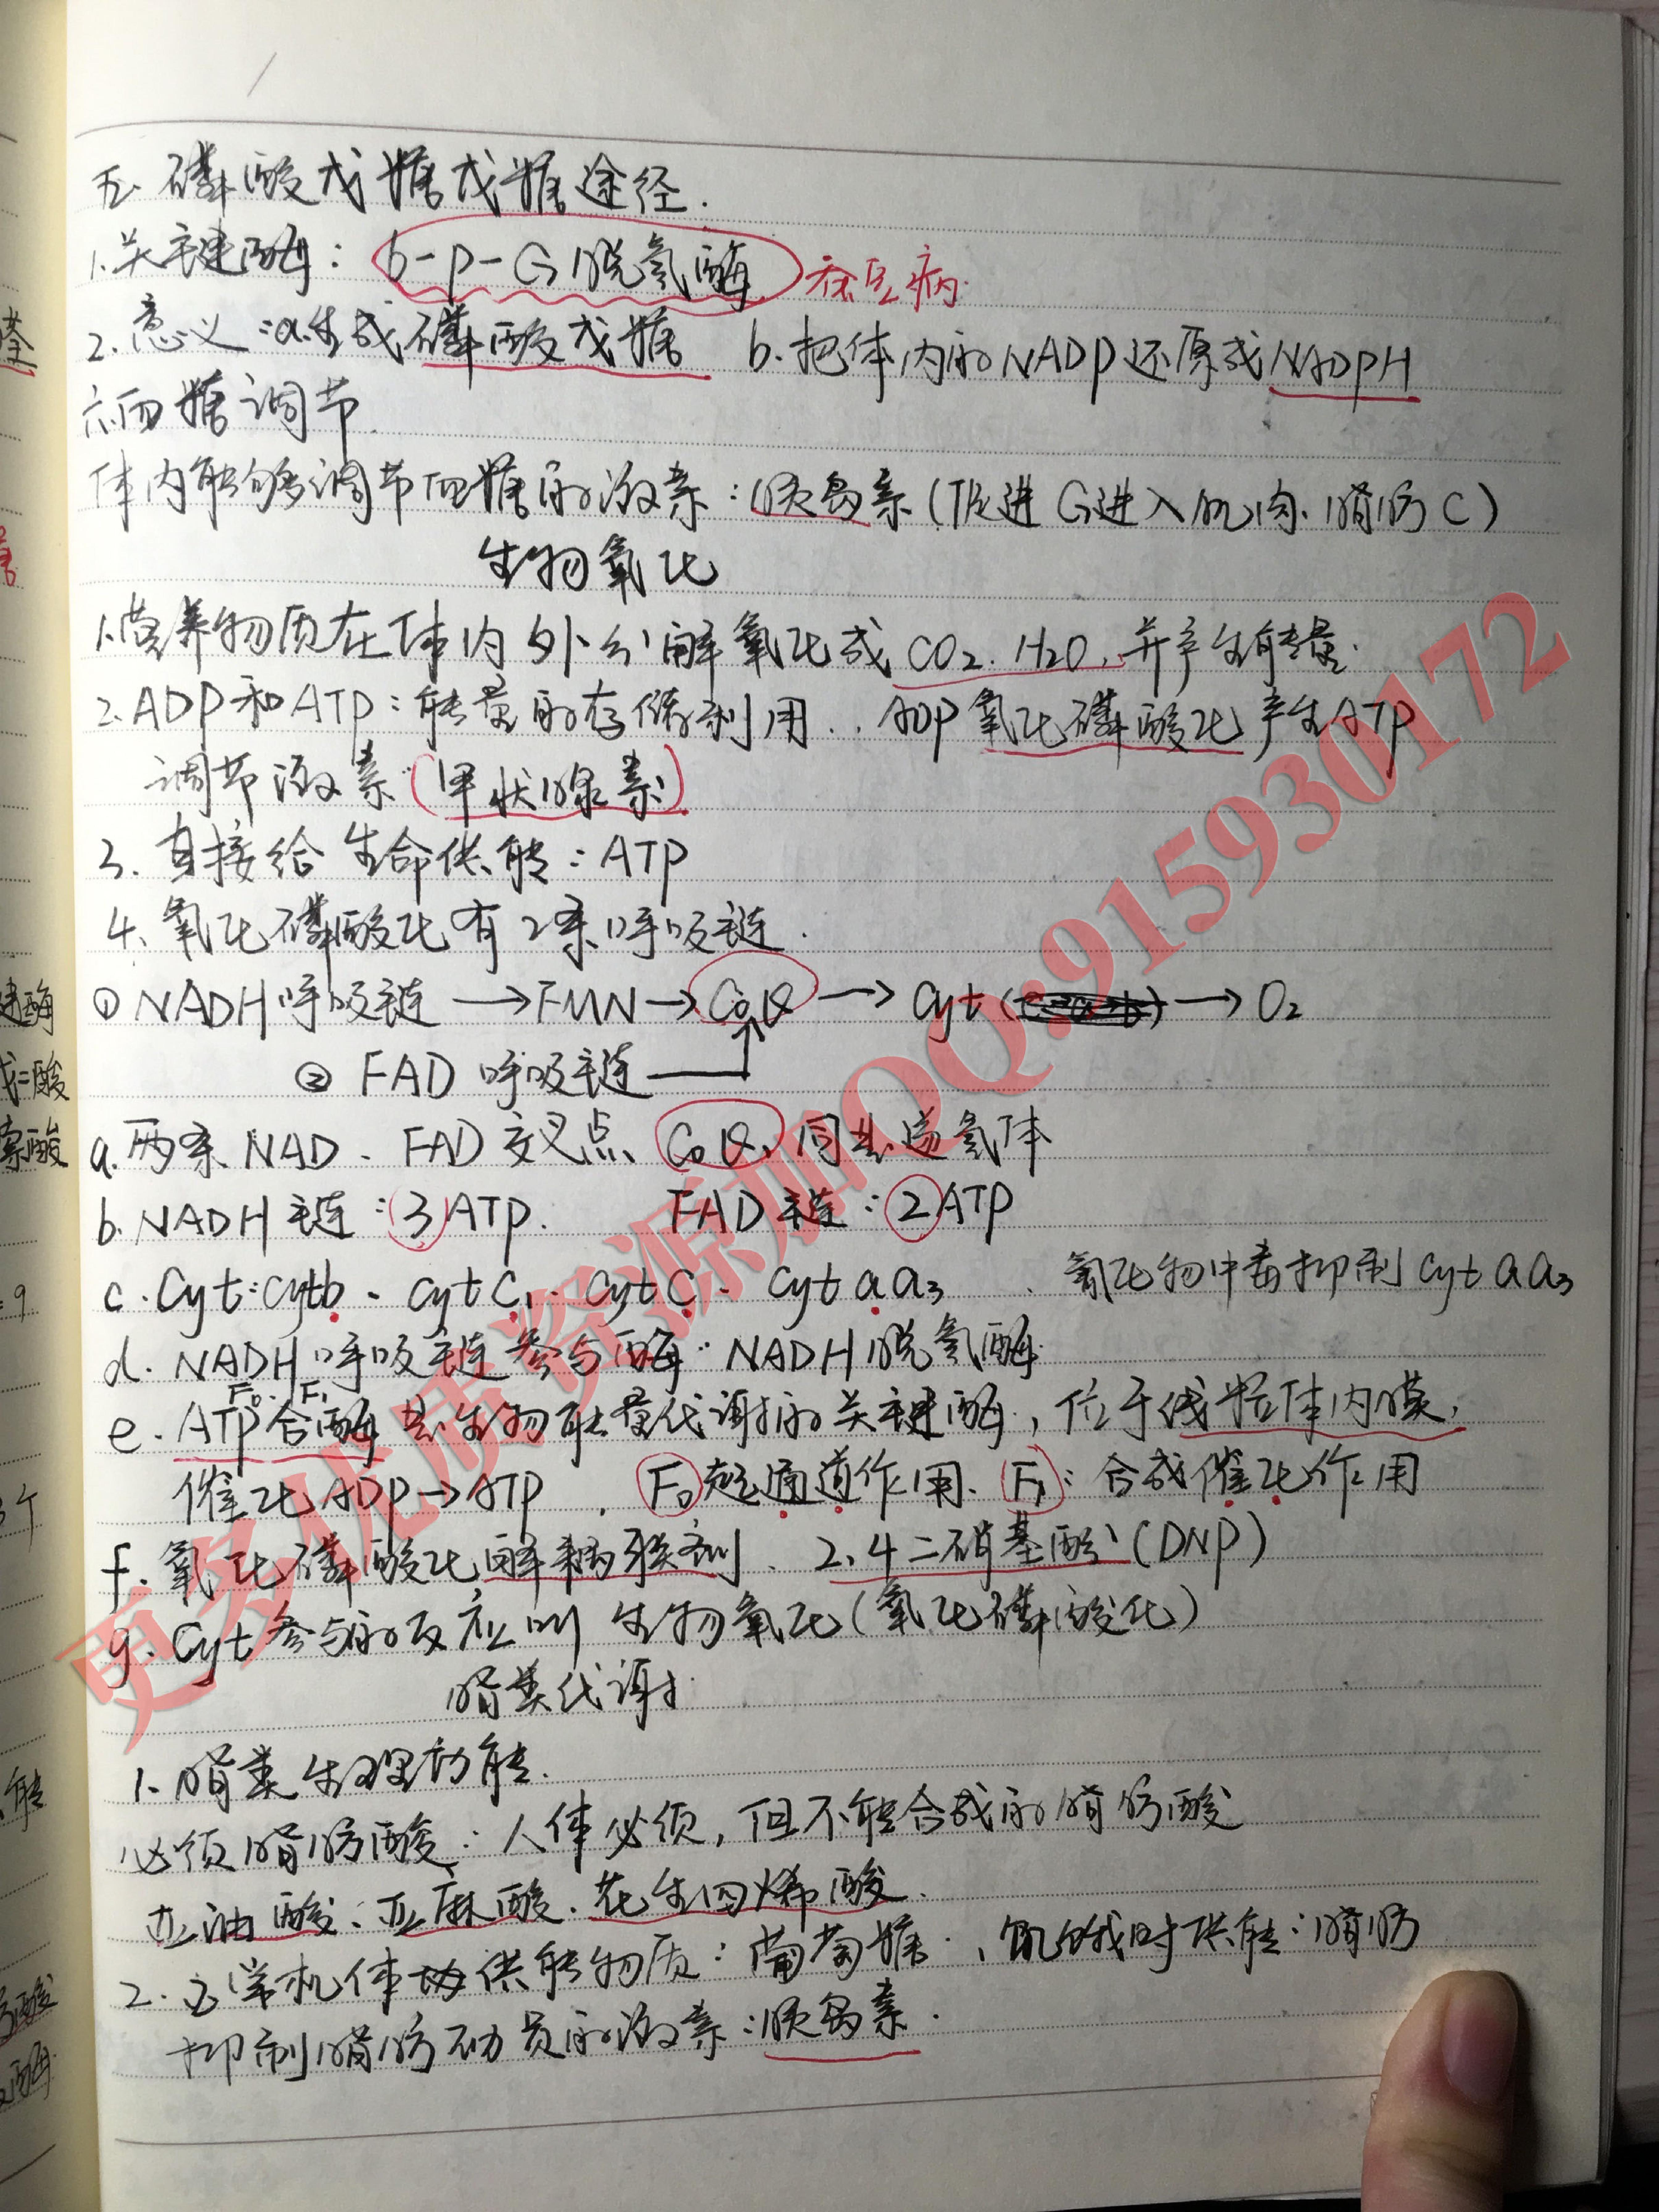 五、磷酸戊糖戊糖途径.
1.关键酶: 6-P-G脱氢酶 蚕豆病.
2.意义:a.生成磷酸戊糖 b.把体内的NADP还原成NADPH
六.血糖调节.
体内能够调节血糖的激素:胰岛素(促进G进入肌肉.脂肪C)
生物氧化
1.营养物质在体内外分解氧化成CO2.H2O,并产生能量.
2.ADP和ATP:能量的存储利用.. ADP氧化磷酸化产生ATP
调节激素:(甲状腺素)
3.直接给生命供能:ATP
4、氧化磷酸化有2条呼吸链.
①NADH呼吸链→FMN→CoQ→Cyt( )→O2
②FAD呼吸链
a.两条NAD、FAD交叉点CoQ,同为递氢体
b.NADH链:3ATP. FAD链:2ATP
c.Cyt:cytb、cytC1、cytC、cytaa3 、氰化物中毒抑制Cytaa3
d.NADH呼吸链参与酶:NADH脱氢酶.
F0.F1
e.ATP合酶为生物能量代谢的关键酶,位于线粒体内膜,
催化ADP→ATP , F0起通道作用、F1:合成催化作用
f.氧化磷酸化解耦联剂、2,4二硝基酚(DNP)
g.Cyt参与的反应叫生物氧化(氧化磷酸化)
脂类代谢.
1、脂类生理功能.
必须脂肪酸:人体必须,但不能合成的脂肪酸
亚油酸、亚麻酸.花生四烯酸.
2.正常机体供能物质:葡萄糖.、饥饿时供能:脂肪
抑制脂肪动员的激素:胰岛素.
更多优质资源加QQ:915930172
键酶
戊二酸
=9
3个
能